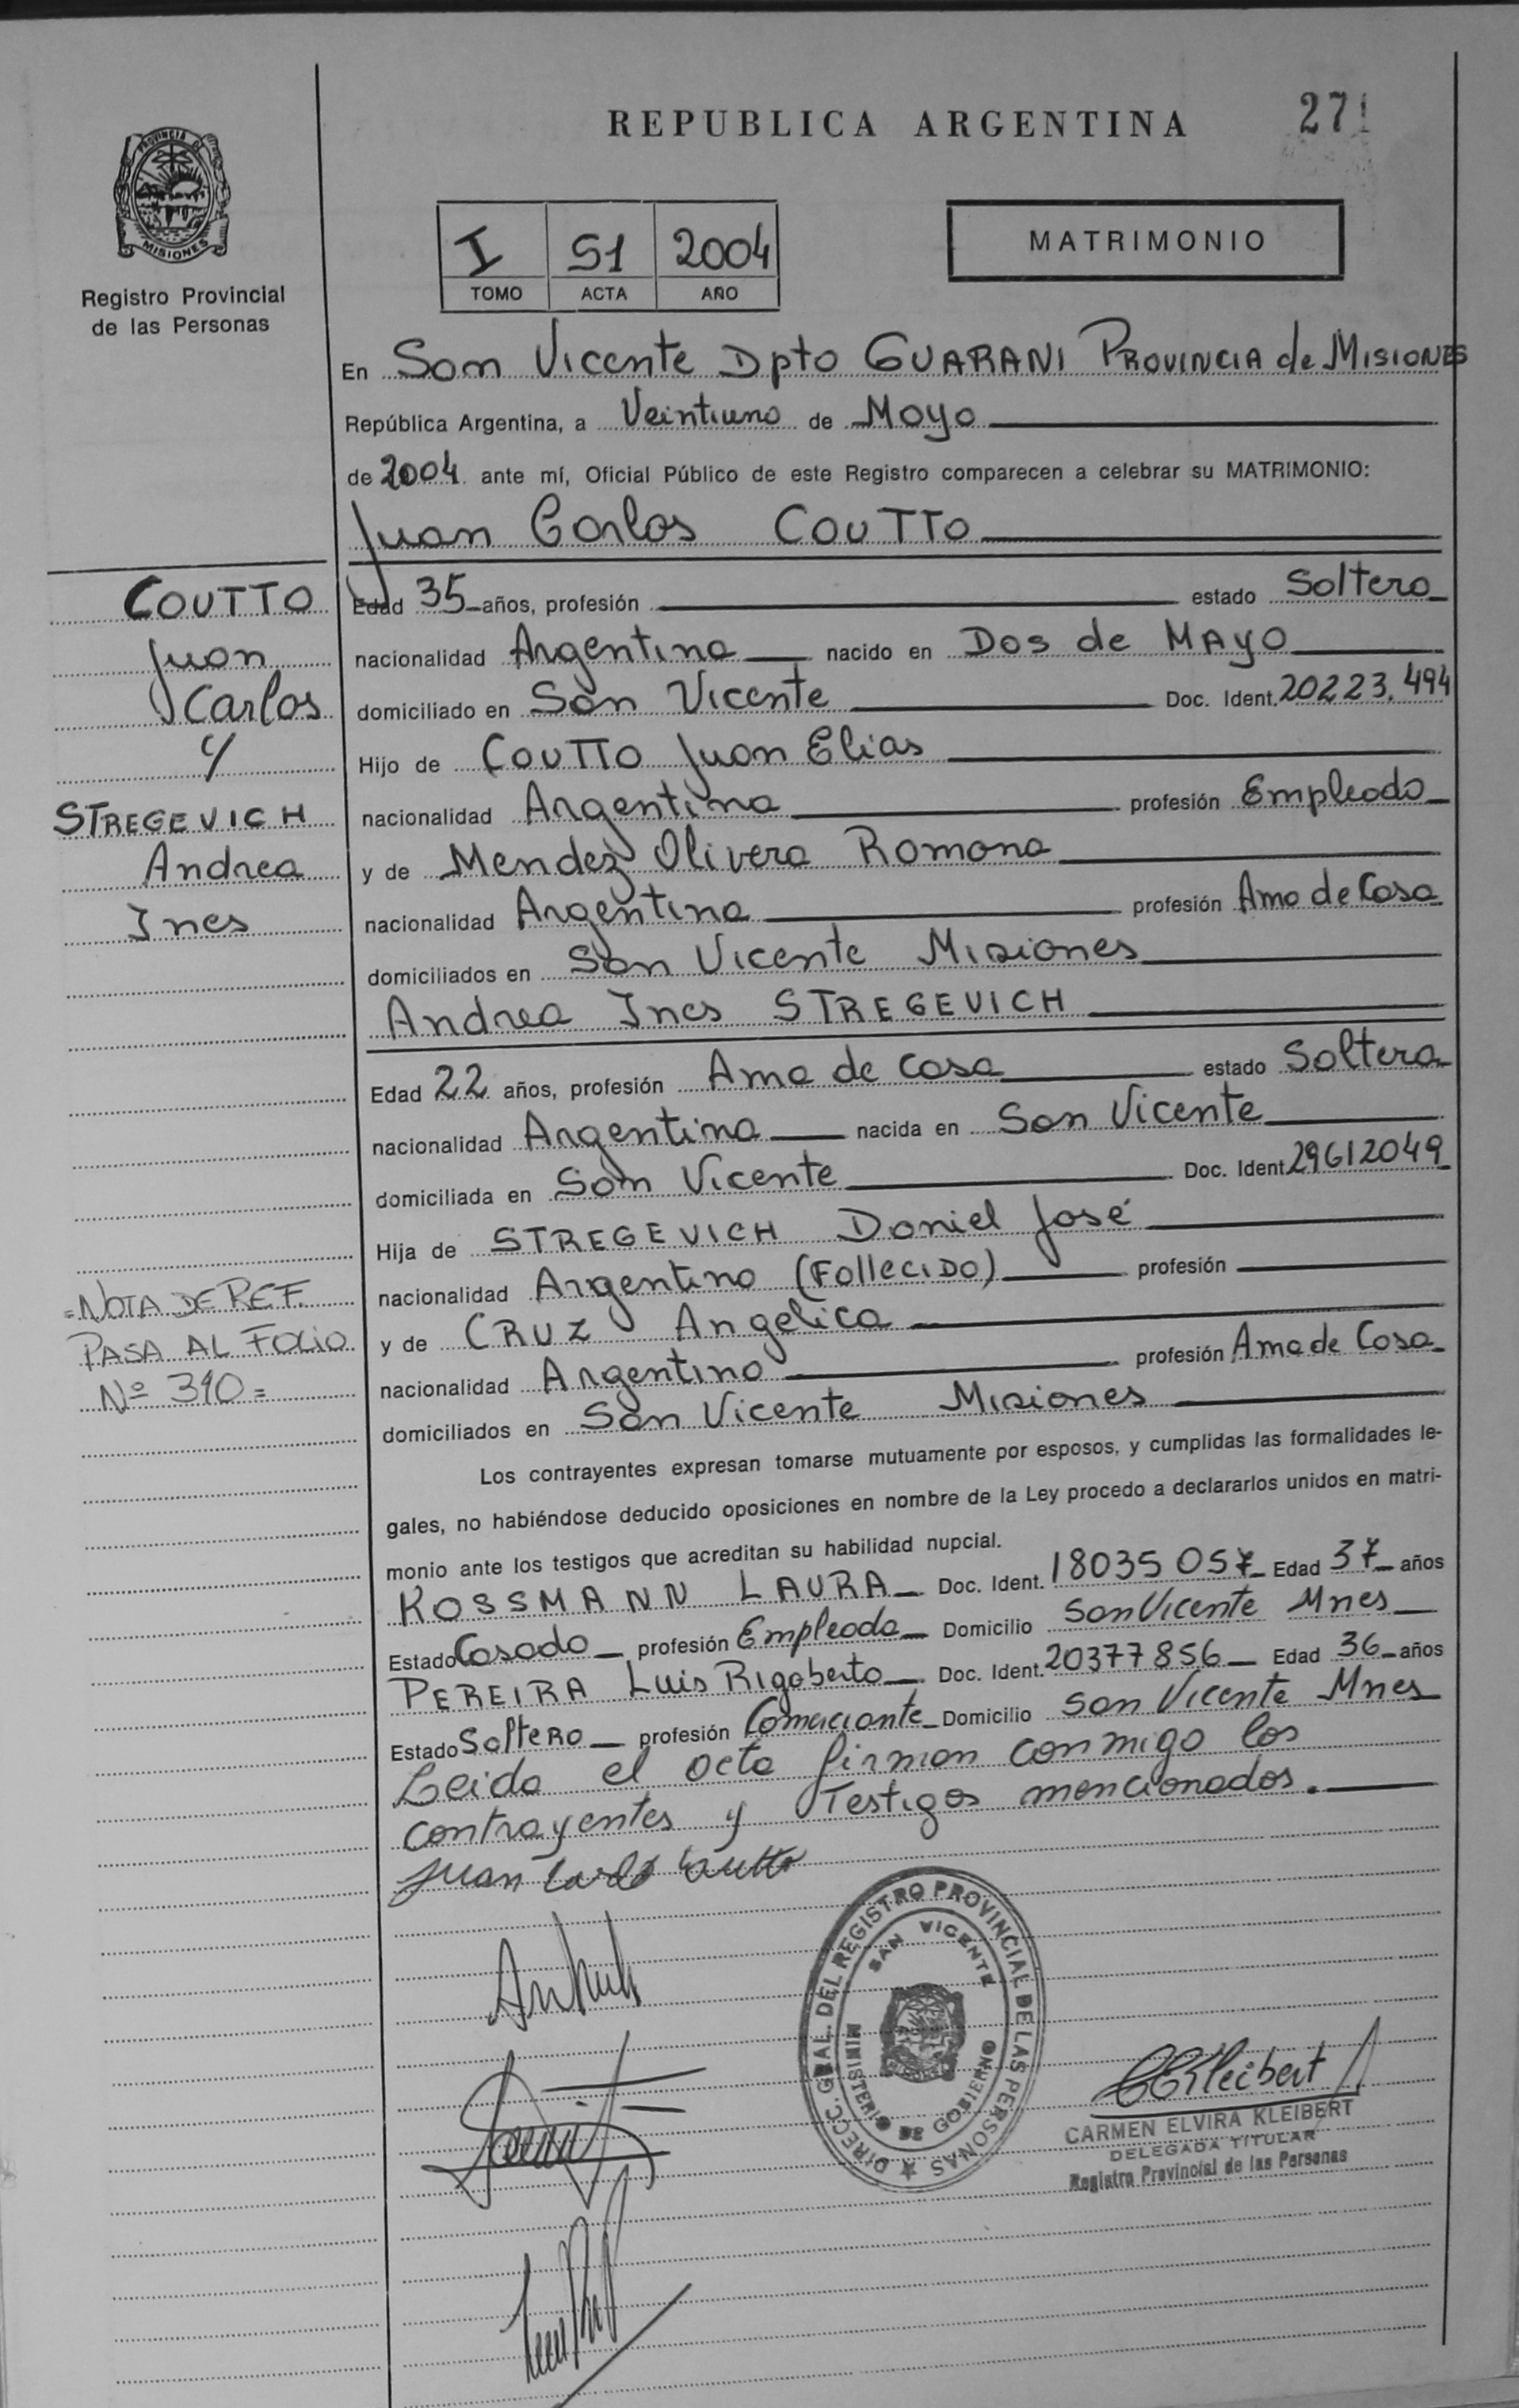 REPUBLICA ARGENTINA
271
PROVINCIA DE
MISIONES
Registro Provincial
de las Personas
I 51 2004
TOMO ACTA AÑO
MATRIMONIO
En San Vicente Dpto GUARANI PROVINCIA de MISIONES
República Argentina, a Veintiuno de Mayo
de 2004 ante mí, Oficial Público de este Registro comparecen a celebrar su MATRIMONIO:
Juan Carlos COUTTO
Edad 35 años, profesión estado Soltero
nacionalidad Argentina nacido en Dos de MAyo
domiciliado en San Vicente Doc. Ident. 20223.494
Hijo de COUTTO Juan Elias
nacionalidad Argentina profesión Empleado
y de Mendez Olivera Romona
nacionalidad Argentina profesión Ama de Casa
domiciliados en San Vicente Misiones
Andrea Ines STREGEVICH
Edad 22 años, profesión Ama de casa estado Soltera
nacionalidad Argentina nacida en San Vicente
domiciliada en San Vicente Doc. Ident. 29612049
Hija de STREGEVICH Daniel José
nacionalidad Argentino (FallecIDO) profesión
y de CRUZ Angelica
nacionalidad Argentino profesión Ama de Casa
domiciliados en San Vicente Misiones
Los contrayentes expresan tomarse mutuamente por esposos, y cumplidas las formalidades le-
gales, no habiéndose deducido oposiciones en nombre de la Ley procedo a declararlos unidos en matri-
monio ante los testigos que acreditan su habilidad nupcial.
KOSSMANN LAURA Doc. Ident. 18035057 Edad 37 años
Estado Casado profesión Empleada Domicilio San Vicente Mnes
PEREIRA Luis Rigoberto Doc. Ident. 20377856 Edad 36 años
Estado Soltero profesión Comerciante Domicilio San Vicente Mnes
Leida el acta firman conmigo los
contrayentes y Testigos mencionados.
Juan Carlos Coutto
COUTTO
Juan
Carlos
y
STREGEVICH
Andrea
Ines
=NOTA DE REF.
PASA AL FOLIO
Nº 390=
DIRECC. GRAL. DEL REGISTRO PROVINCIAL DE LAS PERSONAS
SAN VICENTE
MINISTERIO DE GOBIERNO
CEKleibert
CARMEN ELVIRA KLEIBERT
DELEGADA TITULAR
Registro Provincial de las Personas